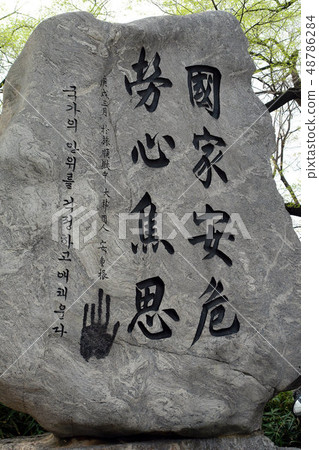 國家安危
勞心焦思
庚戌三月 於旅順獄中 大韓國人 安重根
국가의 안위를 걱정하고 애태운다
PIXTA
48786284